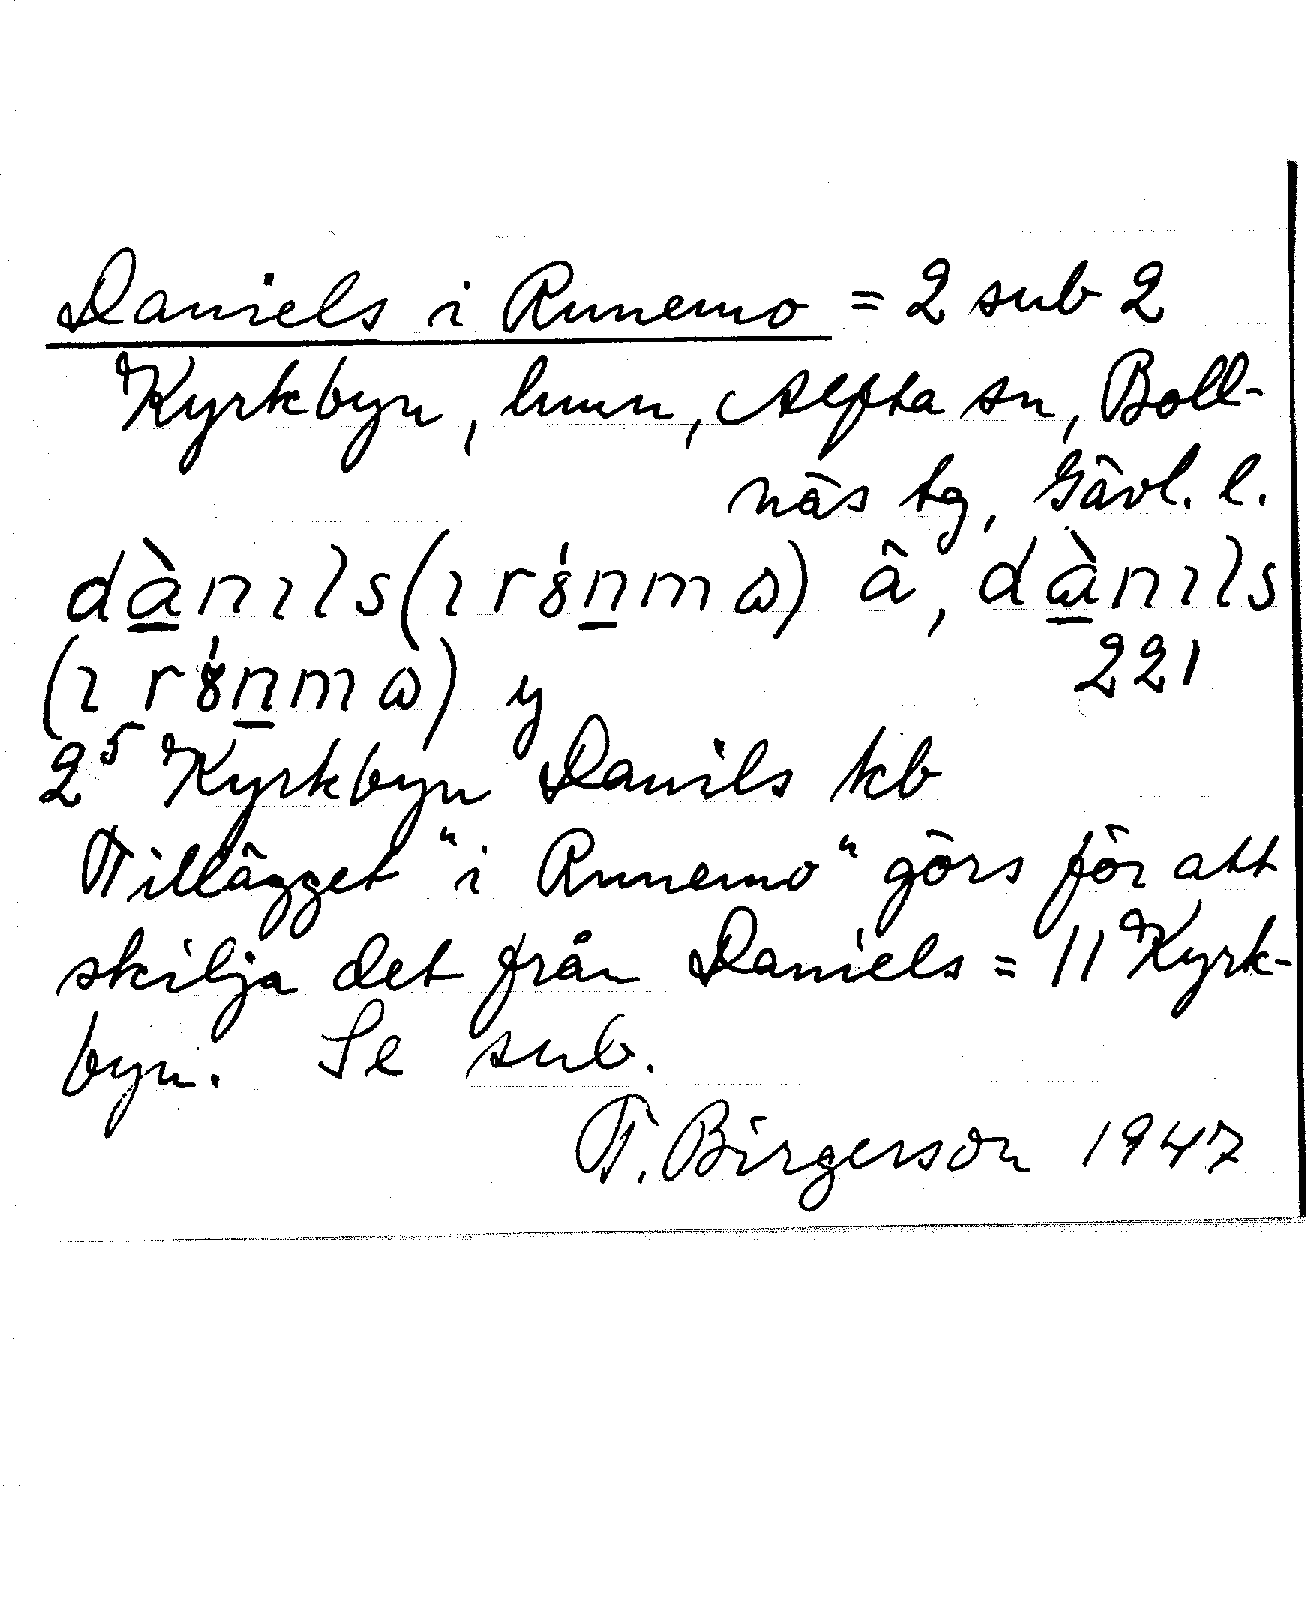 Daniels i Runemo = 2 sub 2
Kyrkbyn, hmn, Alfta sn, Boll-
näs tg, Gävl. l.
dànıls (ı rȣ́nmω) ä, dànıls
221
(ı rȣ́nmω) y
2⁵ Kyrkbyn Danils kb
Tillägget "i Runemo" görs för att
skilja det från Daniels = 11 Kyrk-
byn. Se sub.
T. Birgerson 1947